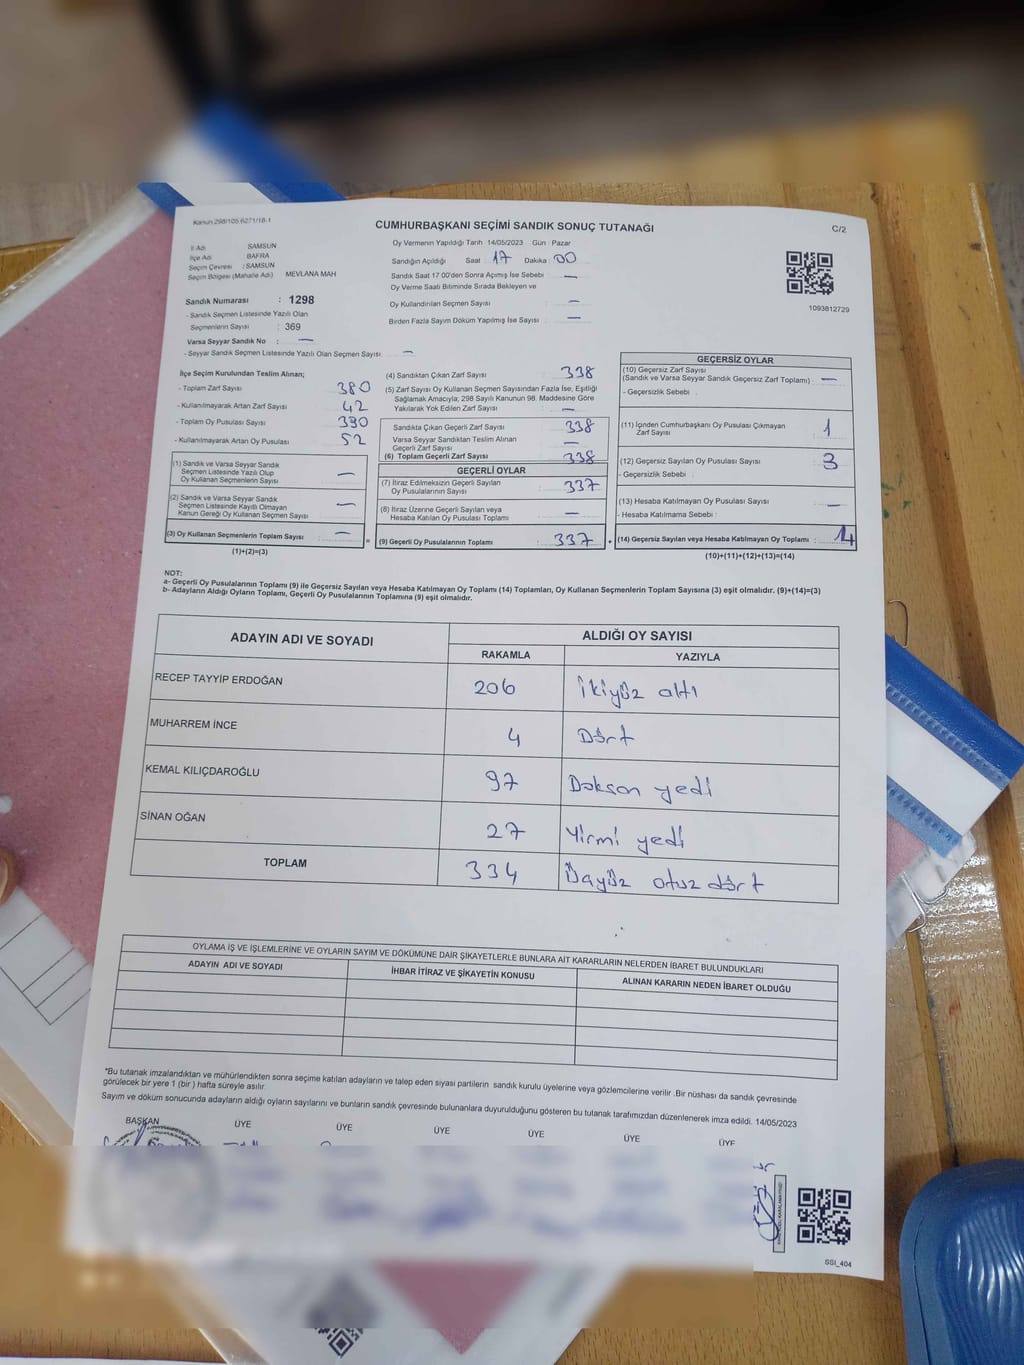 Kanun 298/105 6271/18-1
CUMHURBAŞKANI SEÇİMİ SANDIK SONUÇ TUTANAĞI
C/2
İl Adı SAMSUN
İlçe Adı BAFRA
Seçim Çevresi : SAMSUN
Seçim Bölgesi (Mahalle Adı) MEVLANA MAH
Sandık Numarası : 1298
- Sandık Seçmen Listesinde Yazılı Olan
Seçmenlerin Sayısı : 369
Varsa Seyyar Sandık No : —
- Seyyar Sandık Seçmen Listesinde Yazılı Olan Seçmen Sayısı: —
Oy Vermenin Yapıldığı Tarih 14/05/2023 Gün : Pazar
Sandığın Açıldığı Saat 17 Dakika : 00
Sandık Saat 17:00'den Sonra Açılmış İse Sebebi : —
Oy Verme Saati Bitiminde Sırada Bekleyen ve
Oy Kullandırılan Seçmen Sayısı : —
Birden Fazla Sayım Döküm Yapılmış İse Sayısı : —
1093812729
İlçe Seçim Kurulundan Teslim Alınan;
- Toplam Zarf Sayısı 380
- Kullanılmayarak Artan Zarf Sayısı 42
- Toplam Oy Pusulası Sayısı 390
- Kullanılmayarak Artan Oy Pusulası 52
(1) Sandık ve Varsa Seyyar Sandık
Seçmen Listesinde Yazılı Olup
Oy Kullanan Seçmenlerin Sayısı —
(2) Sandık ve Varsa Seyyar Sandık
Seçmen Listesinde Kayıtlı Olmayan
Kanun Gereği Oy Kullanan Seçmen Sayısı —
(3) Oy Kullanan Seçmenlerin Toplam Sayısı : —
(1)+(2)=(3)
(4) Sandıktan Çıkan Zarf Sayısı : 338
(5) Zarf Sayısı Oy Kullanan Seçmen Sayısından Fazla İse, Eşitliği
Sağlamak Amacıyla, 298 Sayılı Kanunun 98. Maddesine Göre
Yakılarak Yok Edilen Zarf Sayısı : —
Sandıkta Çıkan Geçerli Zarf Sayısı : 338
Varsa Seyyar Sandıktan Teslim Alınan
Geçerli Zarf Sayısı —
(6) Toplam Geçerli Zarf Sayısı : 338
GEÇERLİ OYLAR
(7) İtiraz Edilmeksizin Geçerli Sayılan
Oy Pusulalarının Sayısı : 337
(8) İtiraz Üzerine Geçerli Sayılan veya
Hesaba Katılan Oy Pusulası Toplamı : —
(9) Geçerli Oy Pusulalarının Toplamı : 337
GEÇERSİZ OYLAR
(10) Geçersiz Zarf Sayısı
(Sandık ve Varsa Seyyar Sandık Geçersiz Zarf Toplamı) : —
- Geçersizlik Sebebi :
(11) İçinden Cumhurbaşkanı Oy Pusulası Çıkmayan
Zarf Sayısı : 1
(12) Geçersiz Sayılan Oy Pusulası Sayısı : 3
- Geçersizlik Sebebi :
(13) Hesaba Katılmayan Oy Pusulası Sayısı : —
- Hesaba Katılmama Sebebi :
(14) Geçersiz Sayılan veya Hesaba Katılmayan Oy Toplamı : 4
(10)+(11)+(12)+(13)=(14)
NOT:
a- Geçerli Oy Pusulalarının Toplamı (9) ile Geçersiz Sayılan veya Hesaba Katılmayan Oy Toplamı (14) Toplamları, Oy Kullanan Seçmenlerin Toplam Sayısına (3) eşit olmalıdır. (9)+(14)=(3)
b- Adayların Aldığı Oyların Toplamı, Geçerli Oy Pusulalarının Toplamına (9) eşit olmalıdır.
ADAYIN ADI VE SOYADI ALDIĞI OY SAYISI
RAKAMLA YAZIYLA
RECEP TAYYİP ERDOĞAN 206 İkiyüz altı
MUHARREM İNCE 4 Dört
KEMAL KILIÇDAROĞLU 97 Doksan yedi
SİNAN OĞAN 27 Yirmi yedi
TOPLAM 334 Üçyüz otuz dört
OYLAMA İŞ VE İŞLEMLERİNE VE OYLARIN SAYIM VE DÖKÜMÜNE DAİR ŞİKAYETLERLE BUNLARA AİT KARARLARIN NELERDEN İBARET BULUNDUKLARI
ADAYIN ADI VE SOYADI İHBAR İTİRAZ VE ŞİKAYETİN KONUSU ALINAN KARARIN NEDEN İBARET OLDUĞU
*Bu tutanak imzalandıktan ve mühürlendikten sonra seçime katılan adayların ve talep eden siyasi partilerin sandık kurulu üyelerine veya gözlemcilerine verilir .Bir nüshası da sandık çevresinde
görülecek bir yere 1 (bir ) hafta süreyle asılır.
Sayım ve döküm sonucunda adayların aldığı oyların sayılarını ve bunların sandık çevresinde bulunanlara duyurulduğunu gösteren bu tutanak tarafımızdan düzenlenerek imza edildi. 14/05/2023
BAŞKAN ÜYE ÜYE ÜYE ÜYE ÜYE ÜYE
SSI_404